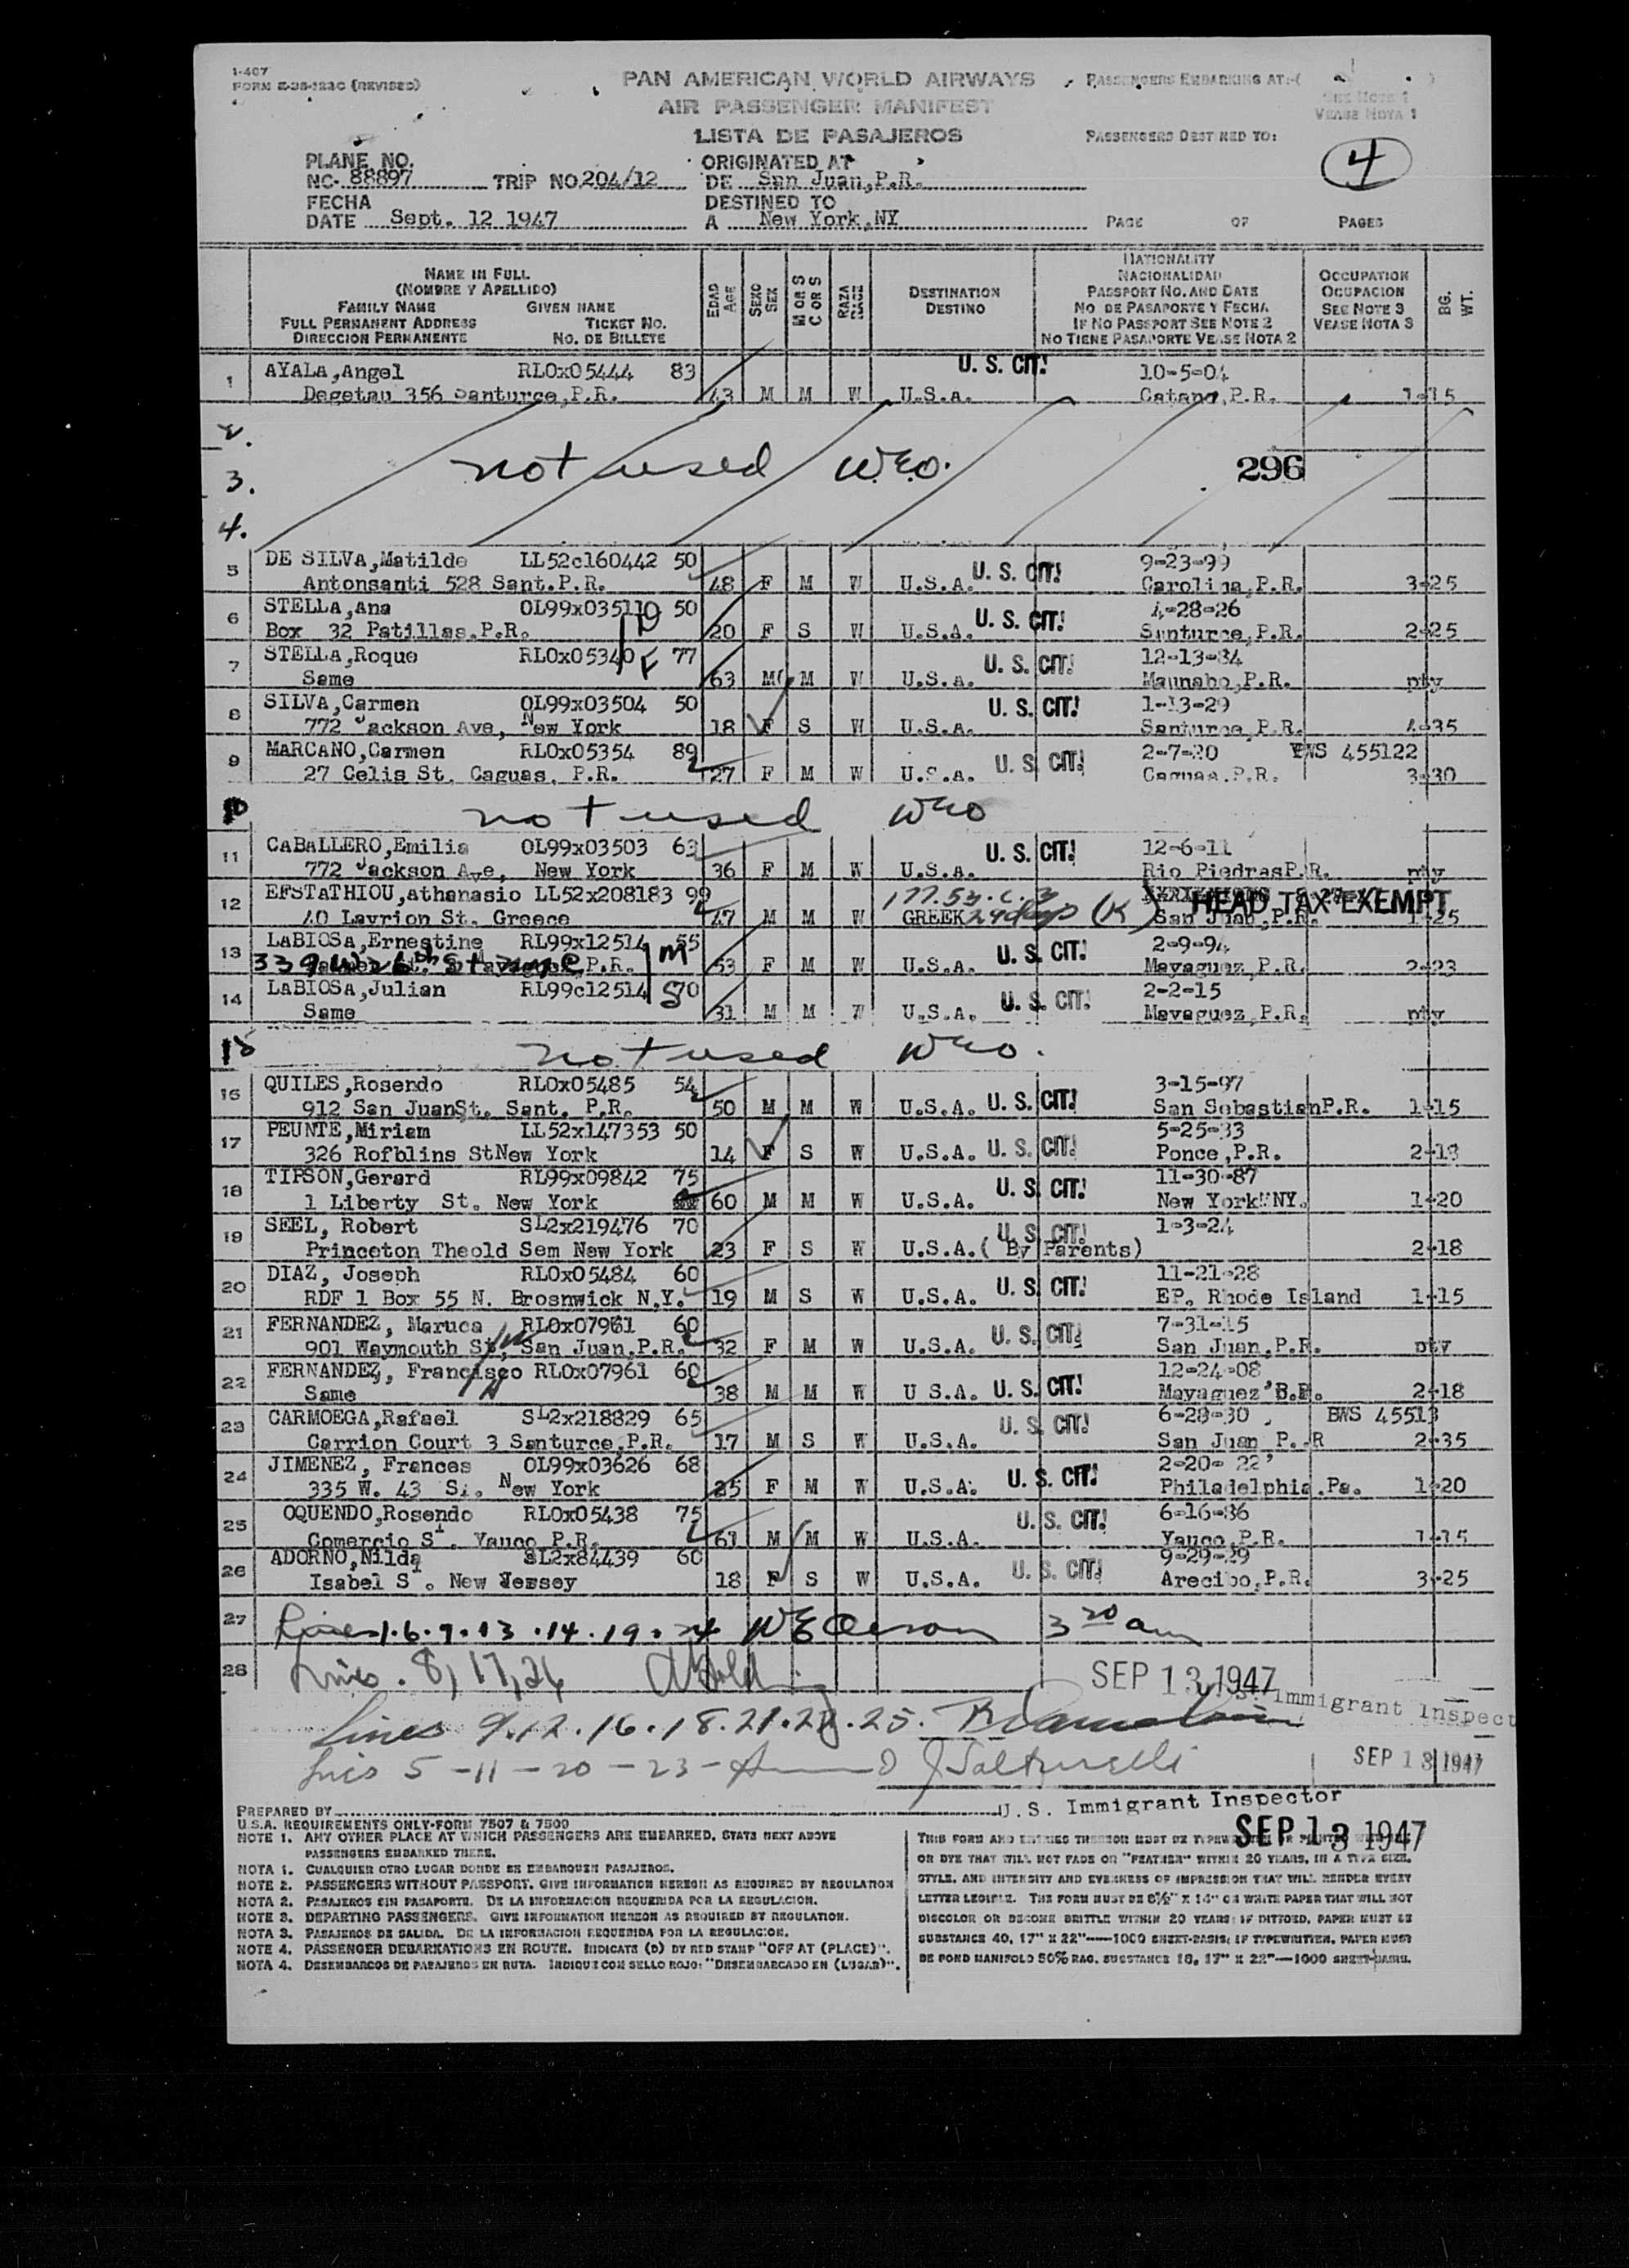 1-407
FORM E-JS-123C (REVISED)
PAN AMERICAN WORLD AIRWAYS
AIR PASSENGER MANIFEST
LISTA DE PASAJEROS
PASSENGERS EMBARKING AT:-(
SEE NOTE 1
VEASE NOTA 1
PASSENGERS DESTINED TO:
4
PLANE NO.
NC- 88897 TRIP NO. 204/12
ORIGINATED AT
DE San Juan, P.R.
FECHA
DATE Sept. 12 1947
DESTINED TO
A New York, NY
PAGE OF PAGES
NAME IN FULL
(NOMBRE Y APELLIDO)
FAMILY NAME GIVEN NAME
FULL PERMANENT ADDRESS TICKET NO.
DIRECCION PERMANENTE NO. DE BILLETE
EDAD AGE
SEXO SEX
M OR S C OR S
RAZA RACE
DESTINATION
DESTINO
NATIONALITY
NACIONALIDAD
PASSPORT NO. AND DATE
NO DE PASAPORTE Y FECHA
IF NO PASSPORT SEE NOTE 2
NO TIENE PASAPORTE VEASE NOTA 2
OCCUPATION
OCUPACION
SEE NOTE 3
VEASE NOTA 3
BG. WT.
1 AYALA, Angel RL0x05444 83 U. S. CIT. 10-5-04
Degetau 356 Santurce, P.R. 43 M M W U.S.A. Catano, P.R. 1-15
2.
3. not used W.E.O. 296
4.
5 DE SILVA, Matilde LL52c160442 50 U. S. CIT. 9-23-99
Antonsanti 528 Sant. P.R. 48 F M W U.S.A. Carolina, P.R. 3-25
6 STELLA, Ana OL99x03511 50 U. S. CIT. 4-28-26
Box 32 Patillas, P.R. 20 F S W U.S.A. Santurce, P.R. 2-25
7 STELLA, Roque RL0x05340 77 U. S. CIT. 12-13-84
Same 63 M M W U.S.A. Maunabo, P.R. pty
8 SILVA, Carmen OL99x03504 50 U. S. CIT. 1-13-29
772 Jackson Ave, New York 18 F S W U.S.A. Santurce, P.R. 4-35
9 MARCANO, Carmen RL0x05354 89 U. S. CIT. 2-7-20 BWS 455122
27 Celis St. Caguas, P.R. 27 F M W U.S.A. Caguas, P.R. 3-30
10 not used WEO
11 CABALLERO, Emilia OL99x03503 63 U. S. CIT. 12-6-11
772 Jackson Ave, New York 36 F M W U.S.A. Rio Piedras P.R. pty
12 EFSTATHIOU, athanasio LL52x208183 99 HEAD TAX EXEMPT
40 Lavrion St. Greece 47 M M W GREEK 29 days (K) San Juan, P.R. 1-25
13 LABIOSA, Ernestine RL99x12514 55 U. S. CIT. 2-9-94
53 F M W U.S.A. Mayaguez, P.R. 2-23
14 LABIOSA, Julian RL99c12514 70 U. S. CIT. 2-2-15
Same 31 M M W U.S.A. Mayaguez, P.R. pty
15 not used WEO.
16 QUILES, Rosendo RL0x05485 54 3-15-97
912 San Juan St. Sant. P.R. 50 M M W U.S.A. U. S. CIT. San Sebastian P.R. 1-15
17 PEUNTE, Miriam LL52x147353 50 5-25-33
326 Rofblins St New York 14 F S W U.S.A. U. S. CIT. Ponce, P.R. 2-18
18 TIPSON, Gerard RL99x09842 75 U. S. CIT. 11-30-87
1 Liberty St. New York 60 M M W U.S.A. New York NY. 1-20
19 SEEL, Robert SL2x219476 70 U. S. CIT. 1-3-24
Princeton Theold Sem New York 23 F S W U.S.A. ( By Parents) 2-18
20 DIAZ, Joseph RL0x05484 60 U. S. CIT. 11-21-28
RDF 1 Box 55 N. Brosnwick N.Y. 19 M S W U.S.A. EP. Rhode Island 1-15
21 FERNANDEZ, Maruca RL0x07961 60 U. S. CIT. 7-31-15
901 Waymouth St, San Juan, P.R. 32 F M W U.S.A. San Juan, P.R. pty
22 FERNANDEZ, Francisco RL0x07961 60 12-24-08
Same 38 M M W U S.A. U. S. CIT. Mayaguez P.R. 2-18
23 CARMOEGA, Rafael SL2x218829 65 U. S. CIT. 6-28-30 BWS 45513
Carrion Court 3 Santurce, P.R. 17 M S W U.S.A. San Juan P.R 2-35
24 JIMENEZ, Frances OL99x03626 68 U. S. CIT. 2-20-22
335 W. 43 St. New York 25 F M W U.S.A. Philadelphia, Pa. 1-20
25 OQUENDO, Rosendo RL0x05438 75 U. S. CIT. 6-16-86
Comercio St. Yauco P.R. 61 M M W U.S.A. Yauco, P.R. 1-15
26 ADORNO, Nilda SL2x84439 60 U. S. CIT. 9-29-29
Isabel St. New Jersey 18 F S W U.S.A. Arecibo, P.R. 3-25
27 Lines 1.6.7.13.14.19.24 3 20 am
28 Lines. 8, 17, 26 SEP 13 1947
U.S. Immigrant Inspect
Lines 9.12.16.18.21.22.25.
Lines 5-11-20-23- SEP 13 1947
U.S. Immigrant Inspector
SEP 13 1947
PREPARED BY
U.S.A. REQUIREMENTS ONLY-FORM 7507 & 7500
NOTE 1. ANY OTHER PLACE AT WHICH PASSENGERS ARE EMBARKED, STATE NEXT ABOVE
PASSENGERS EMBARKED THERE.
NOTA 1. CUALQUIER OTRO LUGAR DONDE SE EMBARQUEN PASAJEROS.
NOTE 2. PASSENGERS WITHOUT PASSPORT. GIVE INFORMATION HEREON AS REQUIRED BY REGULATION
NOTA 2. PASAJEROS SIN PASAPORTE. DE LA INFORMACION REQUERIDA POR LA REGULACION.
NOTE 3. DEPARTING PASSENGERS. GIVE INFORMATION HEREON AS REQUIRED BY REGULATION.
NOTA 3. PASAJEROS DE SALIDA. DE LA INFORMACION REQUERIDA POR LA REGULACION.
NOTE 4. PASSENGER DEBARKATIONS EN ROUTE. INDICATE (D) BY RED STAMP "OFF AT (PLACE)".
NOTA 4. DESEMBARCOS DE PASAJEROS EN RUTA. INDIQUE CON SELLO ROJO: "DESEMBARCADO EN (LUGAR)".
THIS FORM AND ENTRIES THEREON MUST BE TYPEWRITTEN OR PRINTED WITH INK
OR DYE THAT WILL NOT FADE OR "FEATHER" WITHIN 20 YEARS, IN A TYPE SIZE,
STYLE, AND INTENSITY AND EVENNESS OF IMPRESSION THAT WILL RENDER EVERY
LETTER LEGIBLE. THE FORM MUST BE 8½" X 14" ON WHITE PAPER THAT WILL NOT
DISCOLOR OR BECOME BRITTLE WITHIN 20 YEARS; IF DITTOED, PAPER MUST BE
SUBSTANCE 40, 17" X 22"—1000 SHEET-BASIS; IF TYPEWRITTEN, PAPER MUST
BE FOND MANIFOLD 50% RAG, SUBSTANCE 16, 17" X 22"—1000 SHEET-BASIS.